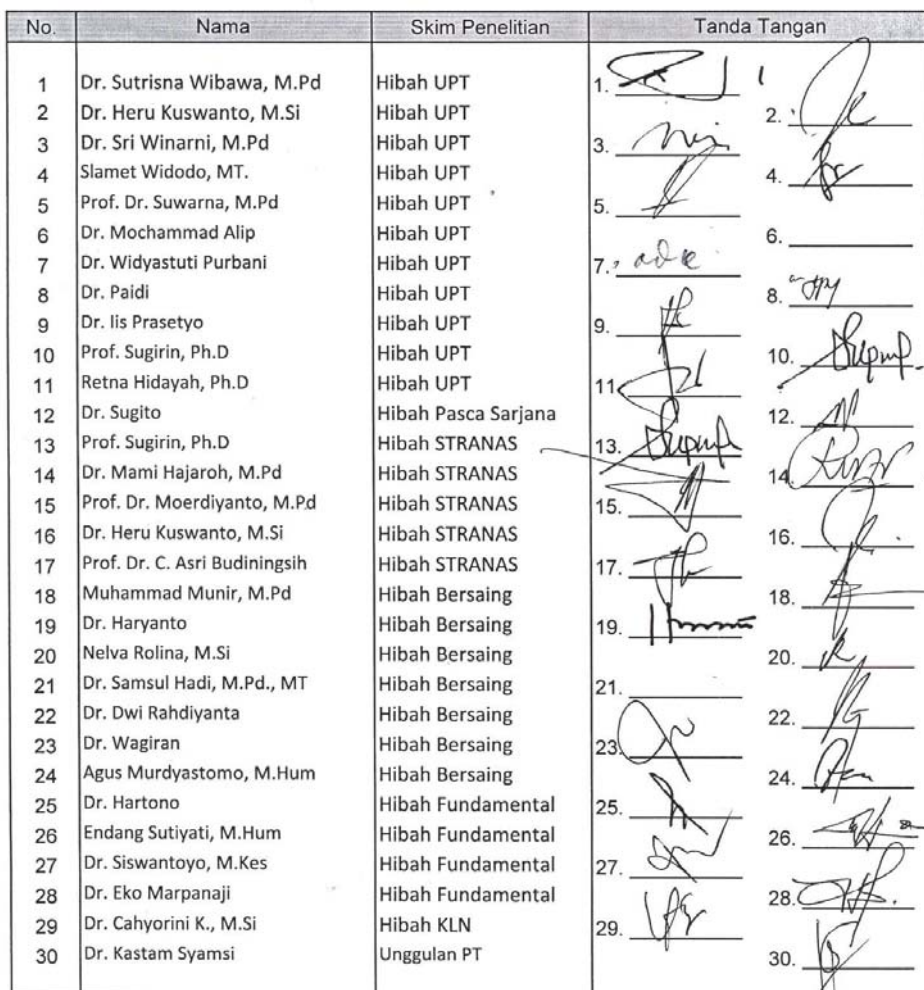 No. Nama Skim Penelitian Tanda Tangan
1 Dr. Sutrisna Wibawa, M.Pd Hibah UPT 1.
2 Dr. Heru Kuswanto, M.Si Hibah UPT 2.
3 Dr. Sri Winarni, M.Pd Hibah UPT 3.
4 Slamet Widodo, MT. Hibah UPT 4.
5 Prof. Dr. Suwarna, M.Pd Hibah UPT 5.
6 Dr. Mochammad Alip Hibah UPT 6.
7 Dr. Widyastuti Purbani Hibah UPT 7.
8 Dr. Paidi Hibah UPT 8.
9 Dr. Iis Prasetyo Hibah UPT 9.
10 Prof. Sugirin, Ph.D Hibah UPT 10.
11 Retna Hidayah, Ph.D Hibah UPT 11
12 Dr. Sugito Hibah Pasca Sarjana 12.
13 Prof. Sugirin, Ph.D Hibah STRANAS 13.
14 Dr. Mami Hajaroh, M.Pd Hibah STRANAS 14.
15 Prof. Dr. Moerdiyanto, M.Pd Hibah STRANAS 15.
16 Dr. Heru Kuswanto, M.Si Hibah STRANAS 16.
17 Prof. Dr. C. Asri Budiningsih Hibah STRANAS 17.
18 Muhammad Munir, M.Pd Hibah Bersaing 18.
19 Dr. Haryanto Hibah Bersaing 19.
20 Nelva Rolina, M.Si Hibah Bersaing 20.
21 Dr. Samsul Hadi, M.Pd., MT Hibah Bersaing 21.
22 Dr. Dwi Rahdiyanta Hibah Bersaing 22.
23 Dr. Wagiran Hibah Bersaing 23.
24 Agus Murdyastomo, M.Hum Hibah Bersaing 24.
25 Dr. Hartono Hibah Fundamental 25.
26 Endang Sutiyati, M.Hum Hibah Fundamental 26.
27 Dr. Siswantoyo, M.Kes Hibah Fundamental 27.
28 Dr. Eko Marpanaji Hibah Fundamental 28.
29 Dr. Cahyorini K., M.Si Hibah KLN 29.
30 Dr. Kastam Syamsi Unggulan PT 30.